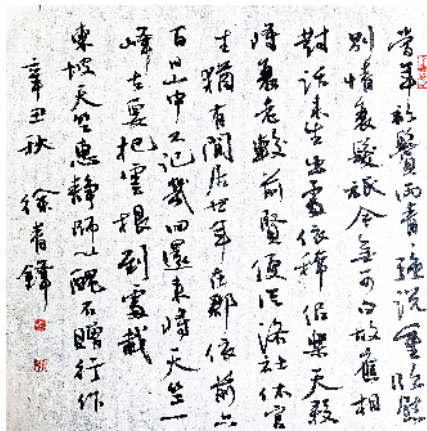 當年衫鬢兩青青強說重臨慰
別情衰髮祇今無可白故應相
對話來生出處依稀似樂天敢
將衰老較前賢便從洛社休官
去猶有閒居廿年在郡依前六
百日山中不記幾回還來將天竺一
峰去要把雲根到處栽
東坡天竺惠靜師以醜石贈行作
辛丑秋 徐青鋒